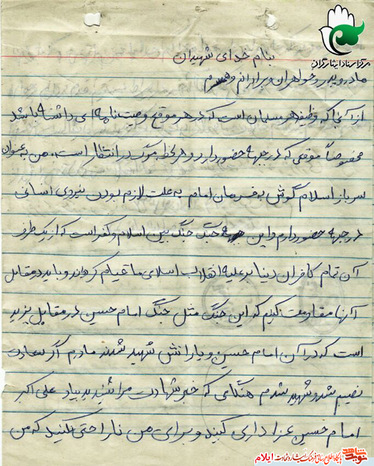 مرکز اسناد ایثارگران
بنام خدای شهیدان
مادر و پدر و خواهران و برادرانم و همسرم
از آنجا که وظیفه هر مسلمان است که در هر موقع وصیت نامه ای داشته باشد
مخصوصاً موقعی که در جبهه حضور دارد و هر لحظه مرگ در انتظار است، من به عنوان
سرباز اسلام گوش به فرمان امام به علت لازم بودن نیروی انسانی
در جبهه حضور دارم و این جنگ جنگ بین اسلام و کفر است که از یک طرف
آن تمام کافران دنیا بر علیه انقلاب اسلامی ما قیام کرده اند و باید در مقابل
آنها مقاومت کنیم که این جنگ مثل جنگ امام حسین در مقابل یزید
است که در آن امام حسین و یارانش شهید شدند مادرم اگر سعادت
نصیبم شد و شهید شدم هنگامی که خبر شهادت مرا شنیدید بیاد علی اکبر
امام حسین عزاداری کنید و برای من ناراحتی نکنید که من
نوید شاهد
پایگاه اطلاع رسانی فرهنگ ایثار و شهادت ایلام